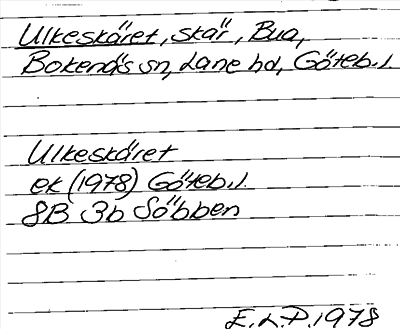 Ulkeskäret, skär, Bua,
Bokenäs sn, Lane hd, Göteb.l.
Ulkeskäret
ek (1978) Göteb.l.
8B 3b Söbben
E.L.P. 1978